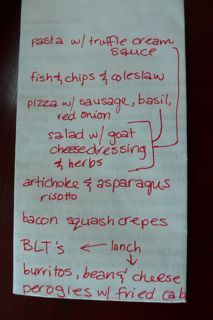 pasta w/ truffle cream
sauce
fish & chips & coleslaw
pizza w/ sausage, basil,
red onion
salad w/ goat
cheese dressing
& herbs
artichoke & asparagus
risotto
bacon squash crepes
BLT's ← lunch
burritos, bean & cheese
perogies w/ fried cab